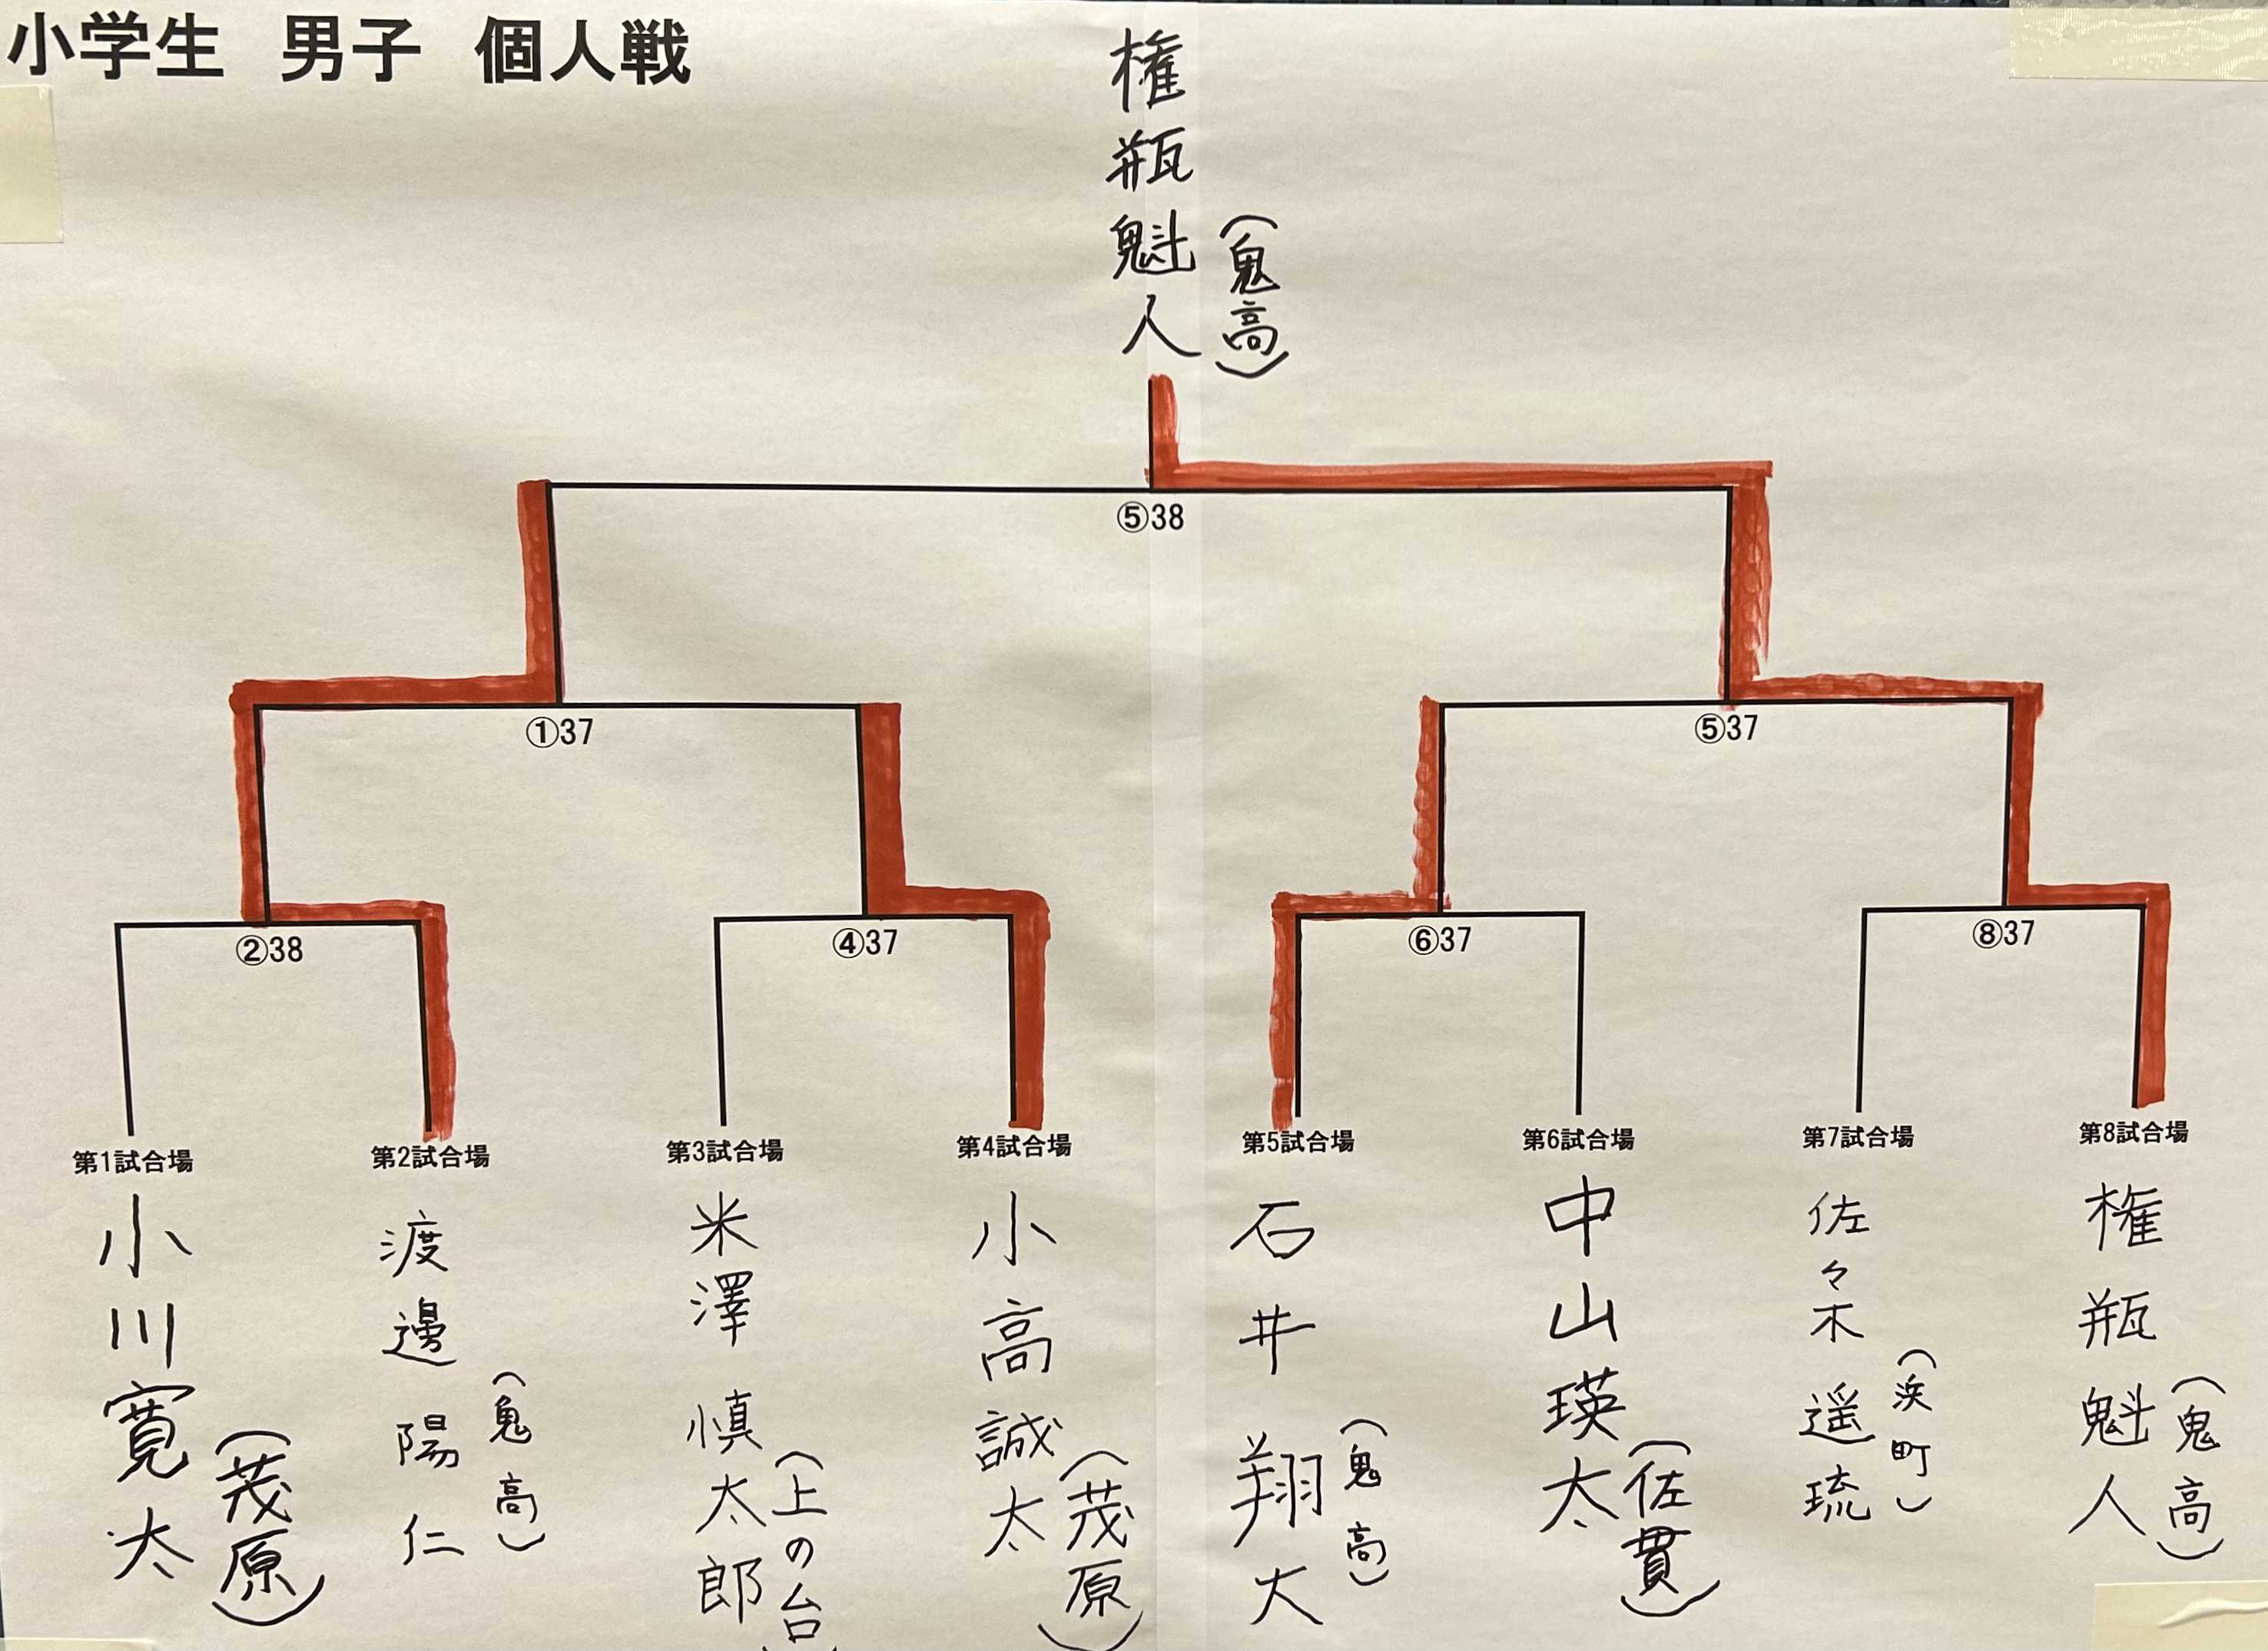 小学生 男子 個人戦
権瓶魁人
(鬼高)
⑤38
①37
⑤37
②38
④37
⑥37
⑧37
第1試合場
第2試合場
第3試合場
第4試合場
第5試合場
第6試合場
第7試合場
第8試合場
小川寛太
(茂原)
渡邊陽仁
(鬼高)
米澤慎太郎
(上の台)
小高誠太
(茂原)
石井翔大
(鬼高)
中山瑛太
(佐貫)
佐々木遥琉
(浜町)
権瓶魁人
(鬼高)